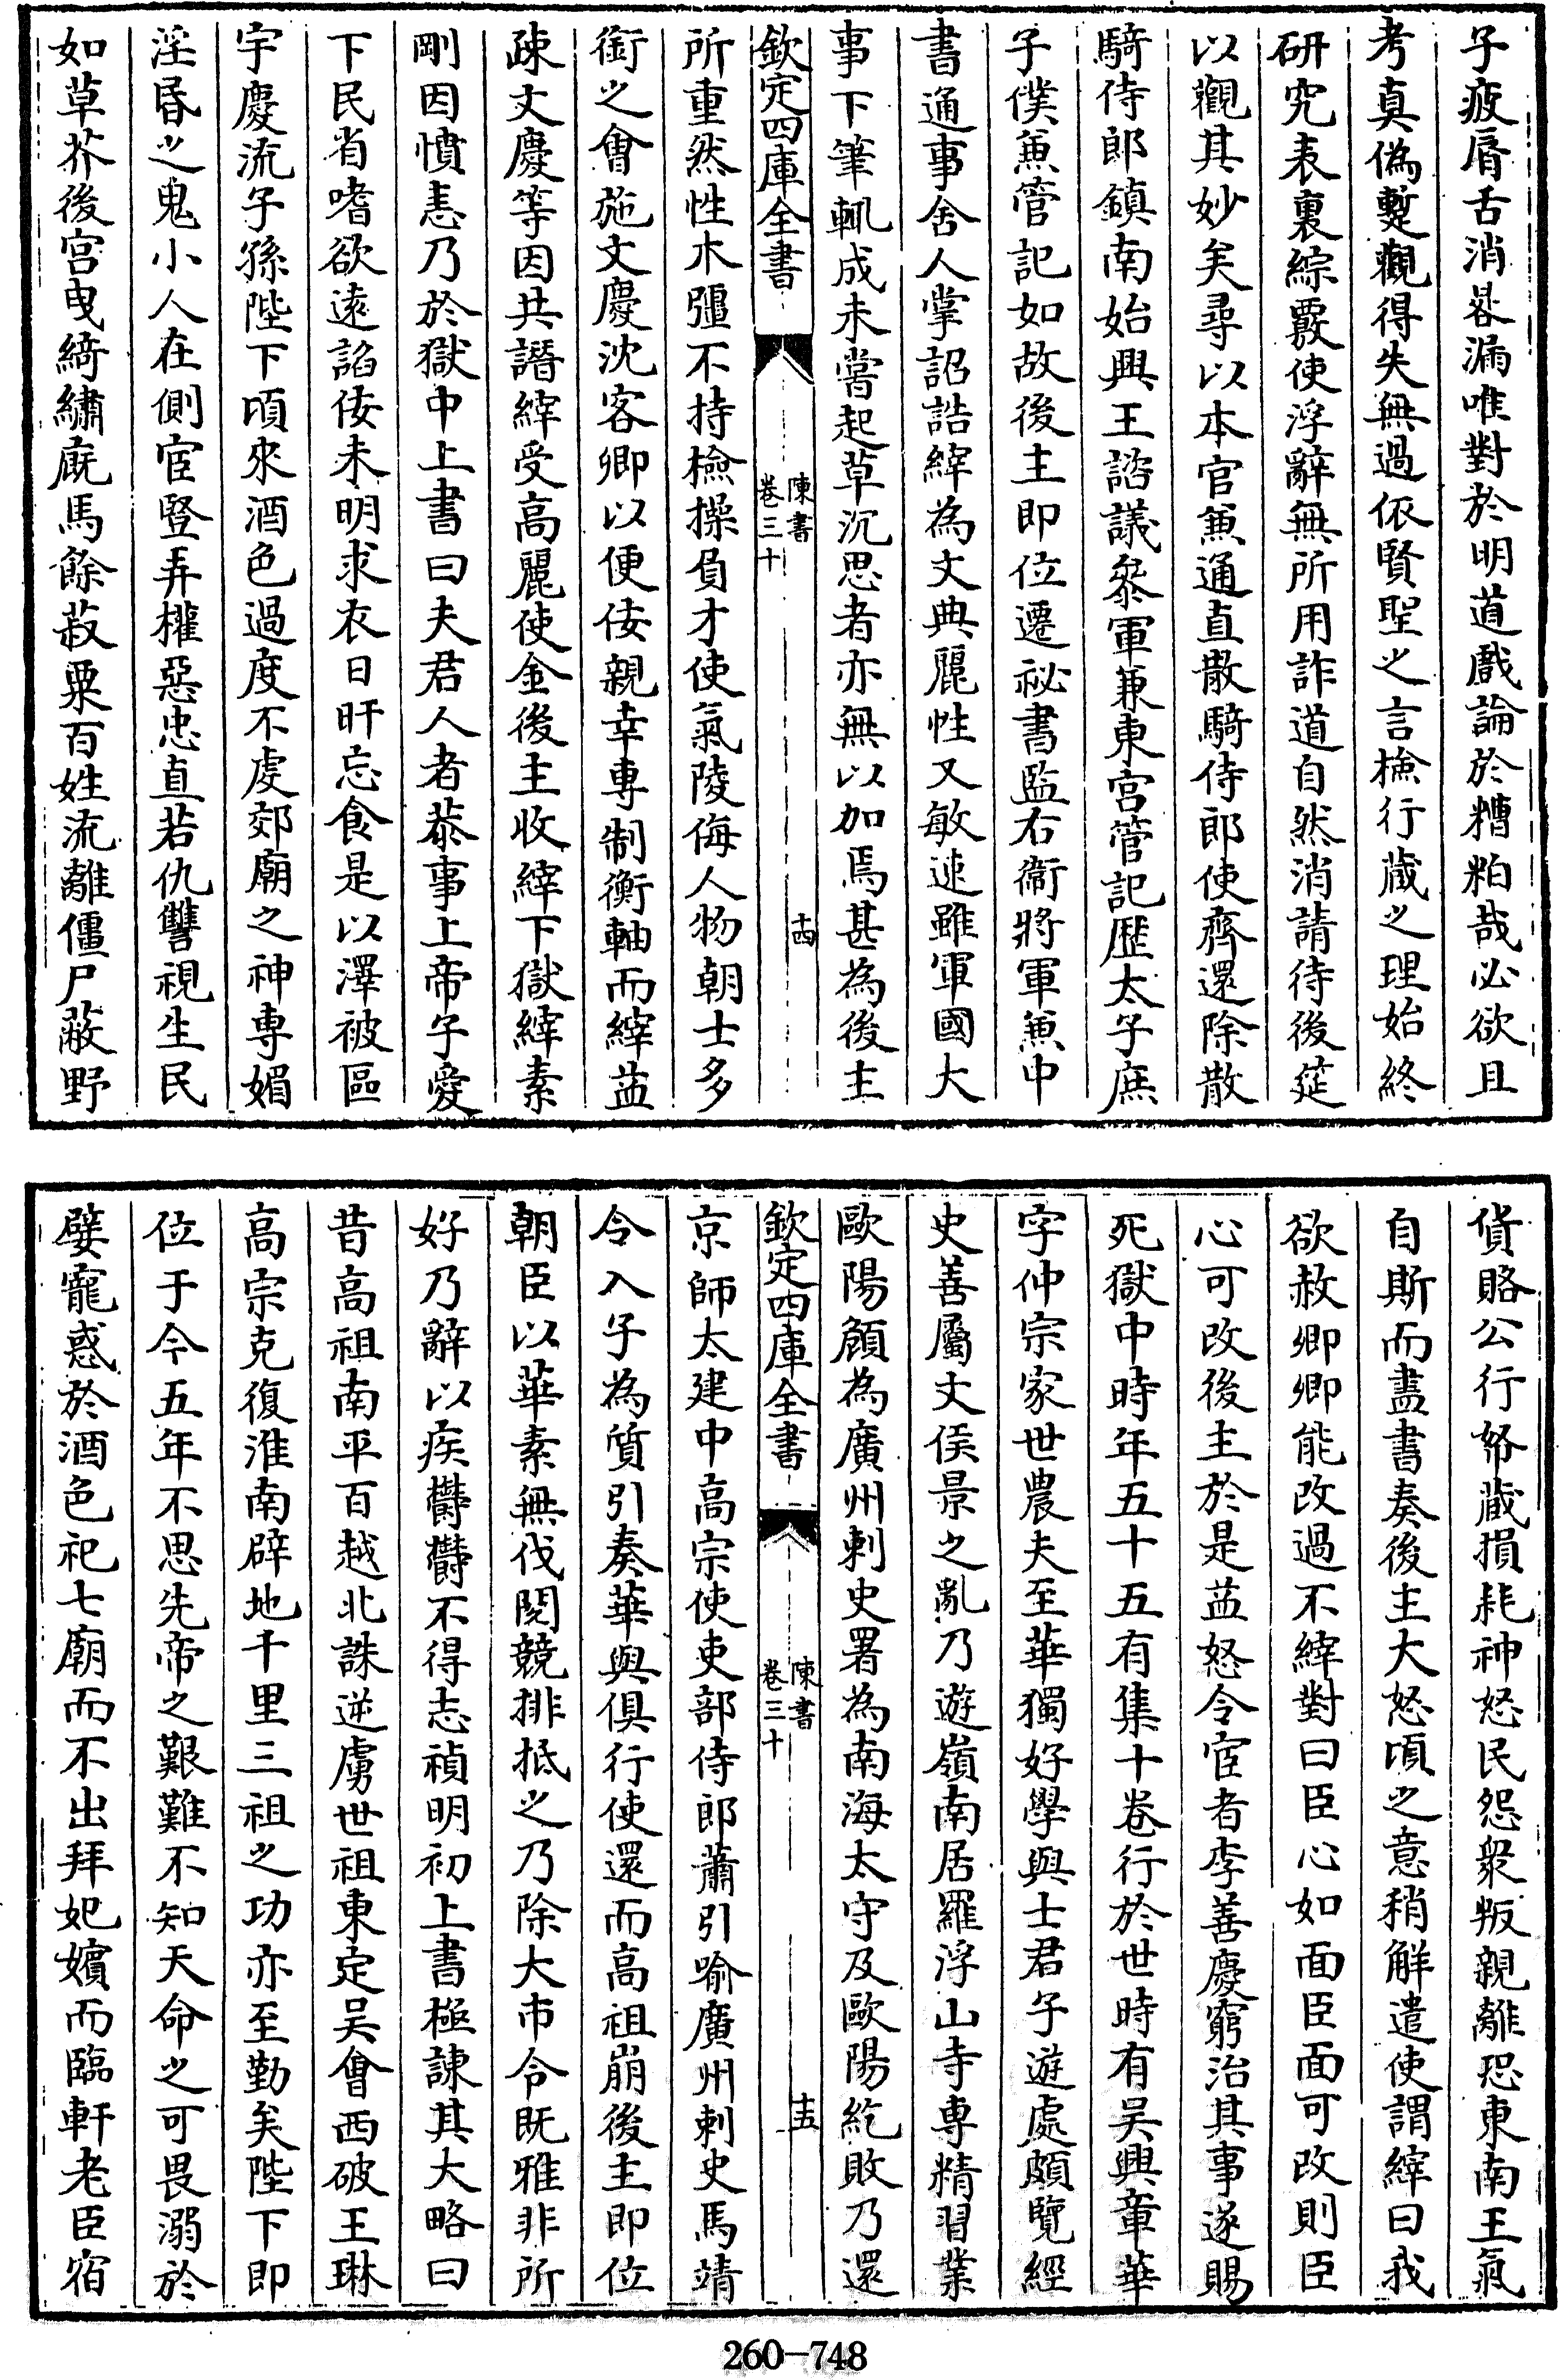 子疲脣舌消晷漏唯對於明道戲論於糟粕哉必欲且
考真偽蹔觀得失無過依賢聖之言檢行藏之理始終
研究表裏綜覈使浮辭無所用詐道自然消請待後筵
以觀其妙矣尋以本官兼通直散騎侍郎使齊還除散
騎侍郎鎮南始興王諮議參軍兼東宮管記歷太子庶
子僕兼管記如故後主即位遷祕書監右衞將軍兼中
書通事舍人掌詔誥縡為文典麗性又敏速雖軍國大
事下筆輒成未嘗起草沉思者亦無以加焉甚為後主
欽定四庫全書
陳書
卷三十
十四
所重然性木彊不持檢操負才使氣陵侮人物朝士多
銜之會施文慶沈客卿以便佞親幸專制衡軸而縡益
疎文慶等因共譖縡受高麗使金後主收縡下獄縡素
剛因憤恚乃於獄中上書曰夫君人者恭事上帝子愛
下民省嗜欲遠諂佞未明求衣日旰忘食是以澤被區
宇慶流子孫陛下頃來酒色過度不虔郊廟之神專媚
淫昏之鬼小人在側宦竪弄權惡忠直若仇讐視生民
如草芥後宮曳綺繡廐馬餘菽粟百姓流離僵尸蔽野
貨賂公行帑藏損耗神怒民怨衆叛親離恐東南王氣
自斯而盡書奏後主大怒頃之意稍解遣使謂縡曰我
欲赦卿卿能改過不縡對曰臣心如面臣面可改則臣
心可改後主於是益怒令宦者李善慶窮治其事遂賜
死獄中時年五十五有集十卷行於世時有吳興章華
字仲宗家世農夫至華獨好學與士君子遊處頗覽經
史善屬文侯景之亂乃遊嶺南居羅浮山寺專精習業
歐陽頠為廣州刺史署為南海太守及歐陽紇敗乃還
欽定四庫全書
陳書
卷三十
十五
京師太建中高宗使吏部侍郎蕭引喻廣州刺史馬靖
令入子為質引奏華與俱行使還而高祖崩後主即位
朝臣以華素無伐閱競排抵之乃除大市令既雅非所
好乃辭以疾鬱鬱不得志禎明初上書極諫其大略曰
昔高祖南平百越北誅逆虜世祖東定吳會西破王琳
高宗克復淮南辟地千里三祖之功亦至勤矣陛下即
位于今五年不思先帝之艱難不知天命之可畏溺於
嬖寵惑於酒色祀七廟而不出拜妃嬪而臨軒老臣宿
260-748